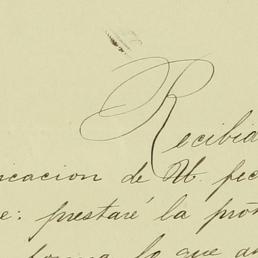 Recibia
icacion de Ub. fec
e: prestaré la pró
forma lo que